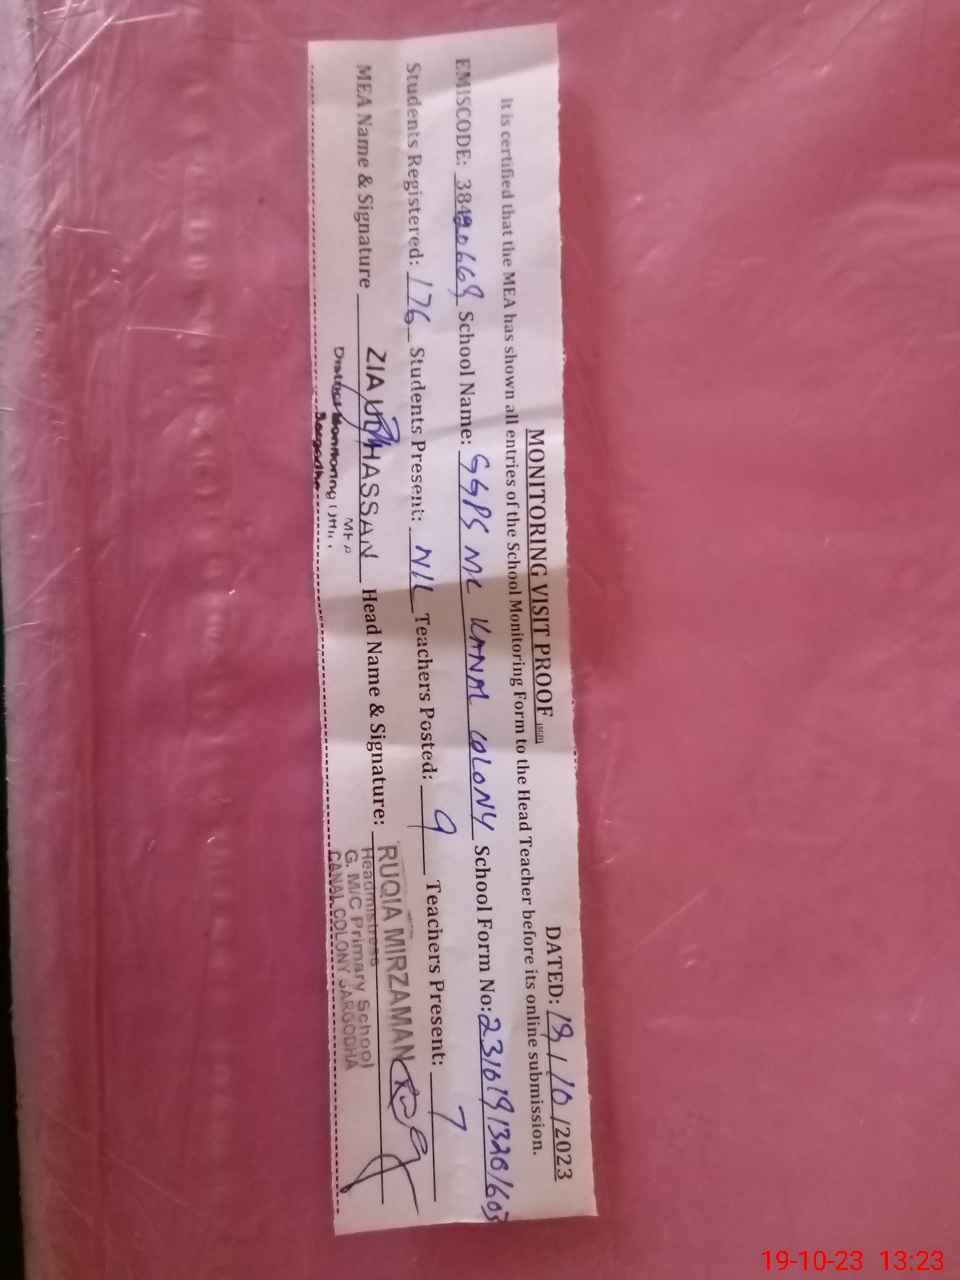 MONITORING VISIT PROOF
DATED: 19/10/2023
It is certified that the MEA has shown all entries of the School Monitoring Form to the Head Teacher before its online submission.
EMISCODE: 38420668 School Name: GGPS MC KANAL COLONY School Form No: 23101913201603
Students Registered: 176 Students Present: NIL Teachers Posted: 9 Teachers Present: 7
MEA Name & Signature ZIA UL HASSAN Head Name & Signature: RUQIA MIRZAMAN
MEA
District Monitoring
Sargodha
Headmistress
G. M/C Primary School
CANAL COLONY SARGODHA
19-10-23 13:23